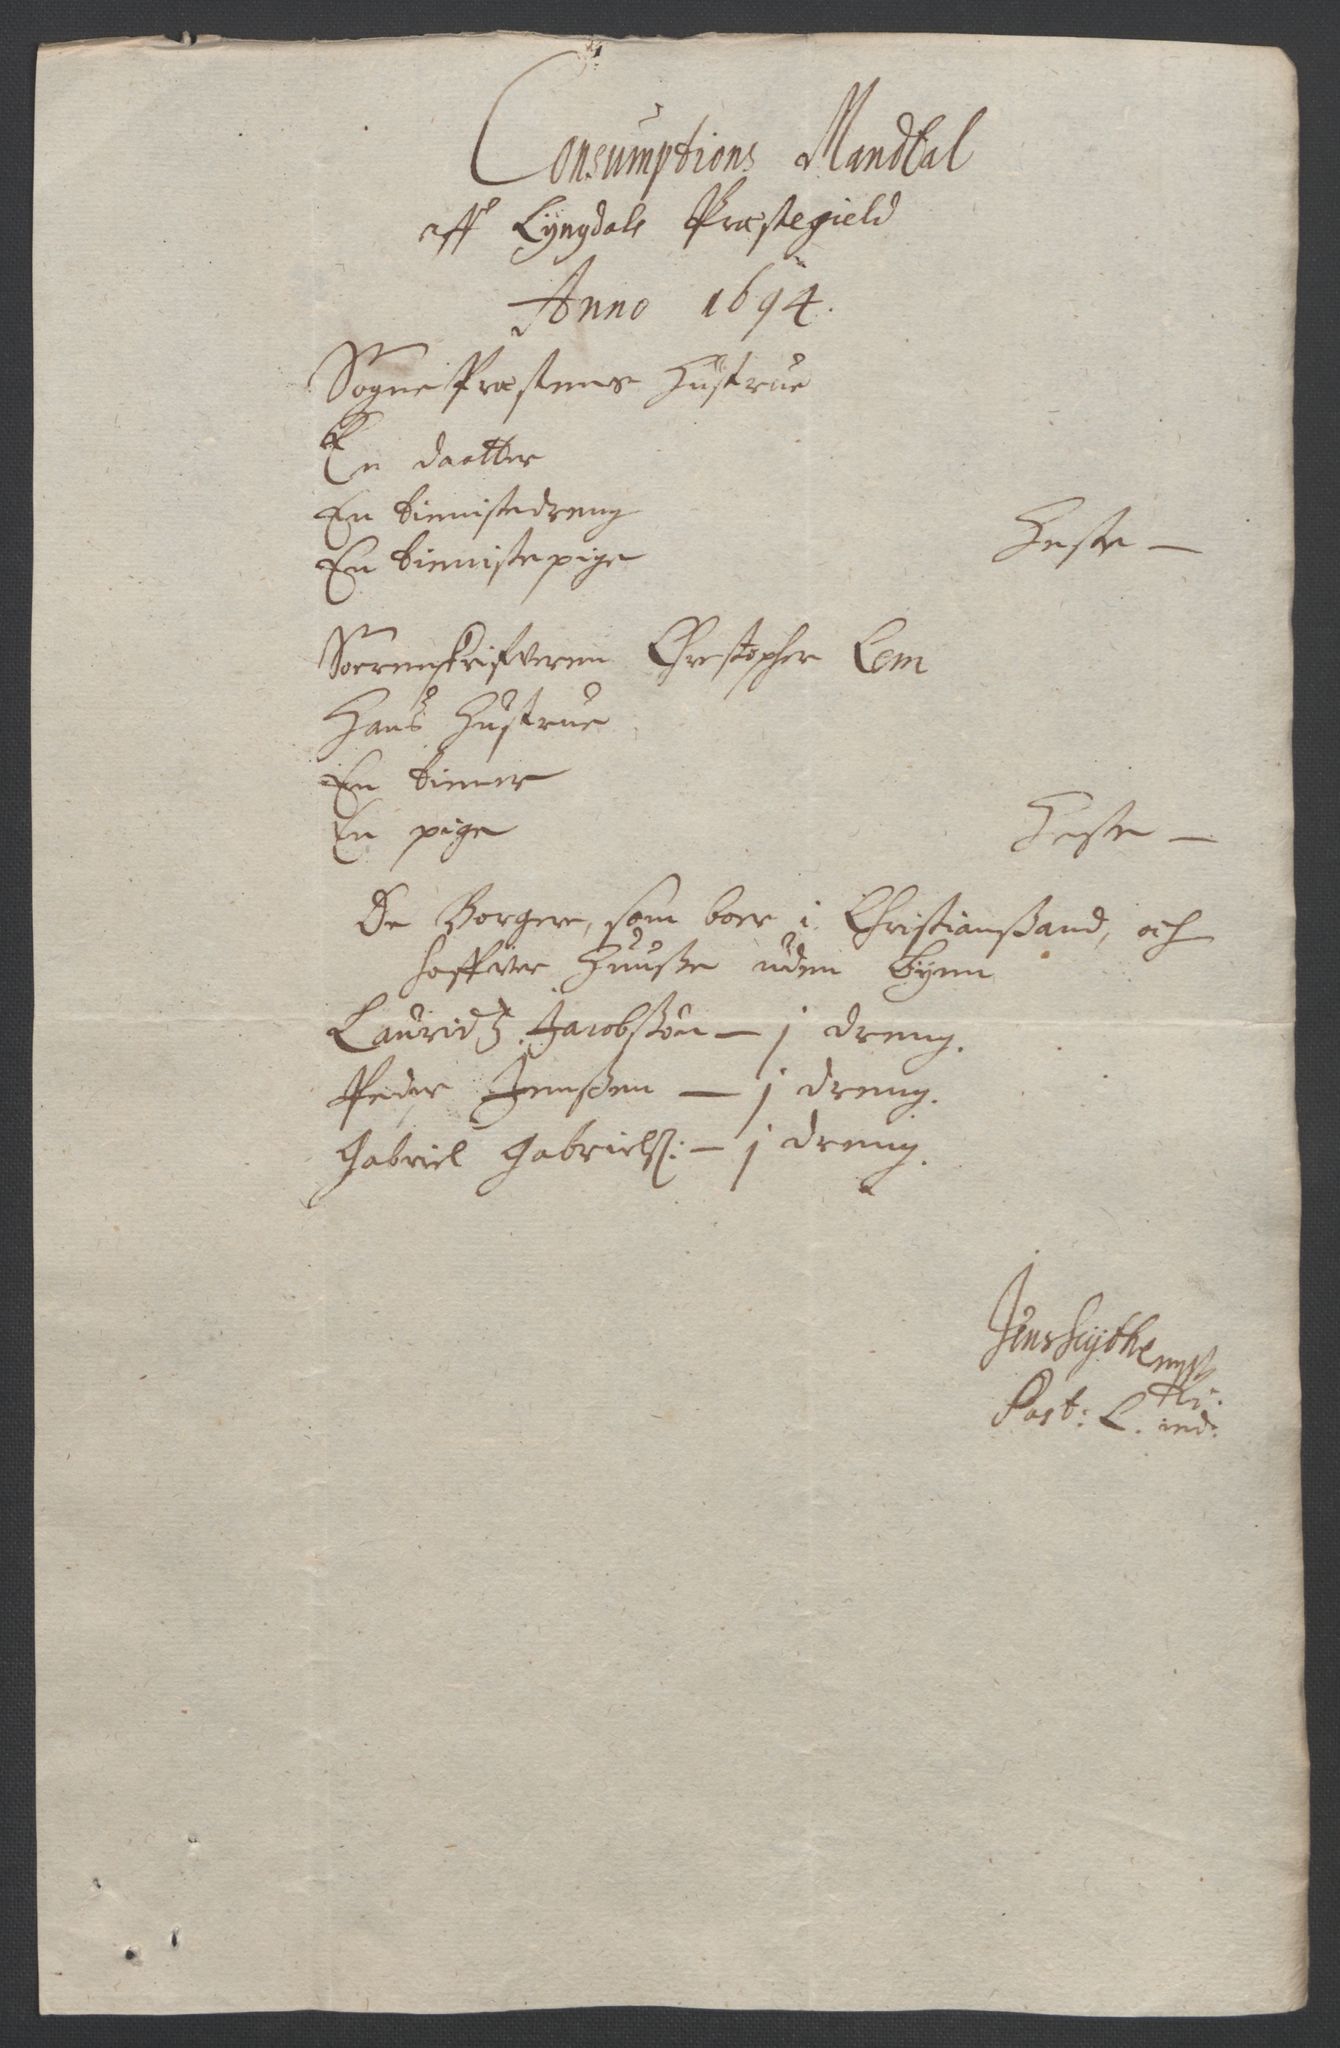 Consumptions Mandtal
aff Lÿngdals Præstegield
Anno 1694.
Sogne Præstens Hüstrue
En daatter
En tienistedreng
En tienistepige Heste —
Soerenskrifveren Chrestopher Lem
Hans Hustrue
En tiener
En pige Heste —
De Borgere, som boer i Christianßand, och
haffver Huuße uden Byen
Lauridtz Jacobsøn — j dreng.
Peder Jenßen — j dreng.
Gabriel Gabriels: — j dreng.
Jens
Past: L.